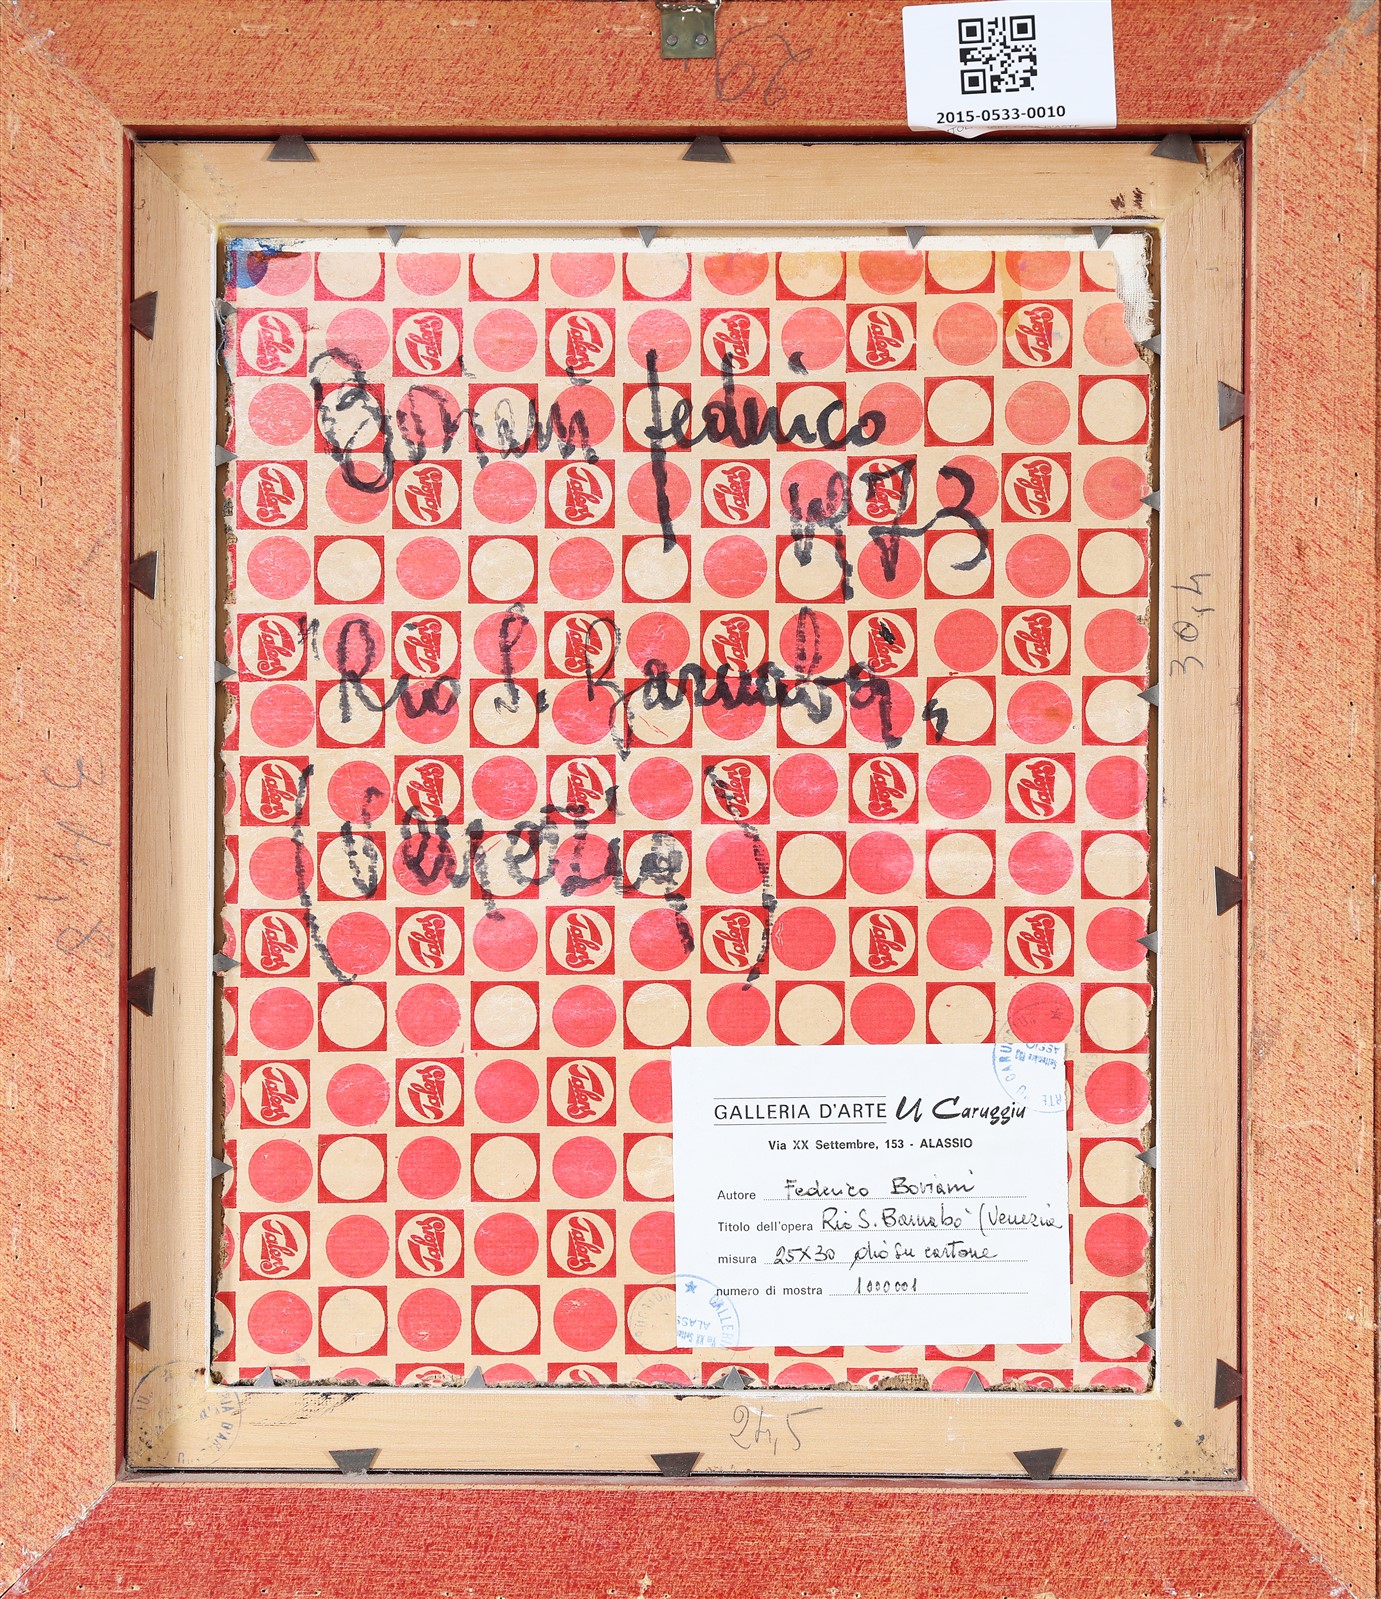 2015-0533-0010
Talens
Boriani federico
1973
"Rio S. Barnaba"
(Venezia)
30,4
GALLERIA D'ARTE U Caruggiu
Via XX Settembre, 153 - ALASSIO
Autore Federico Boriani
Titolo dell'opera Rio S. Barnabò (Venezia
misura 25X30 olio su cartone
numero di mostra 1000001
24,5